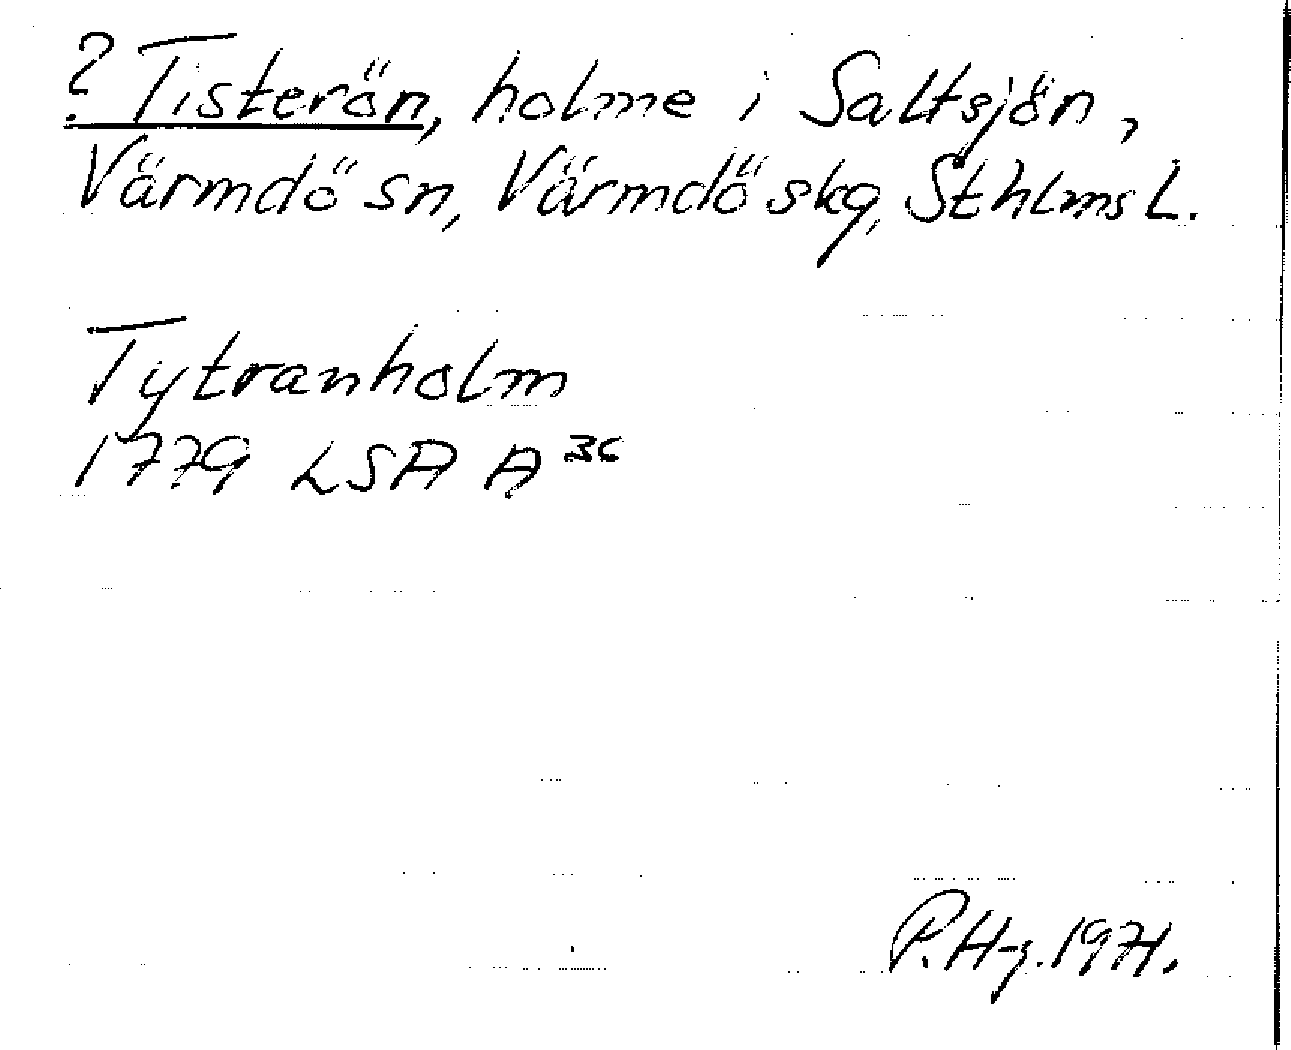 ? Tisterön, holme i Saltsjön,
Värmdö sn, Värmdö skg, Sthlms L.
Tytranholm
1779 LSA A 36
P. H-g. 1971.